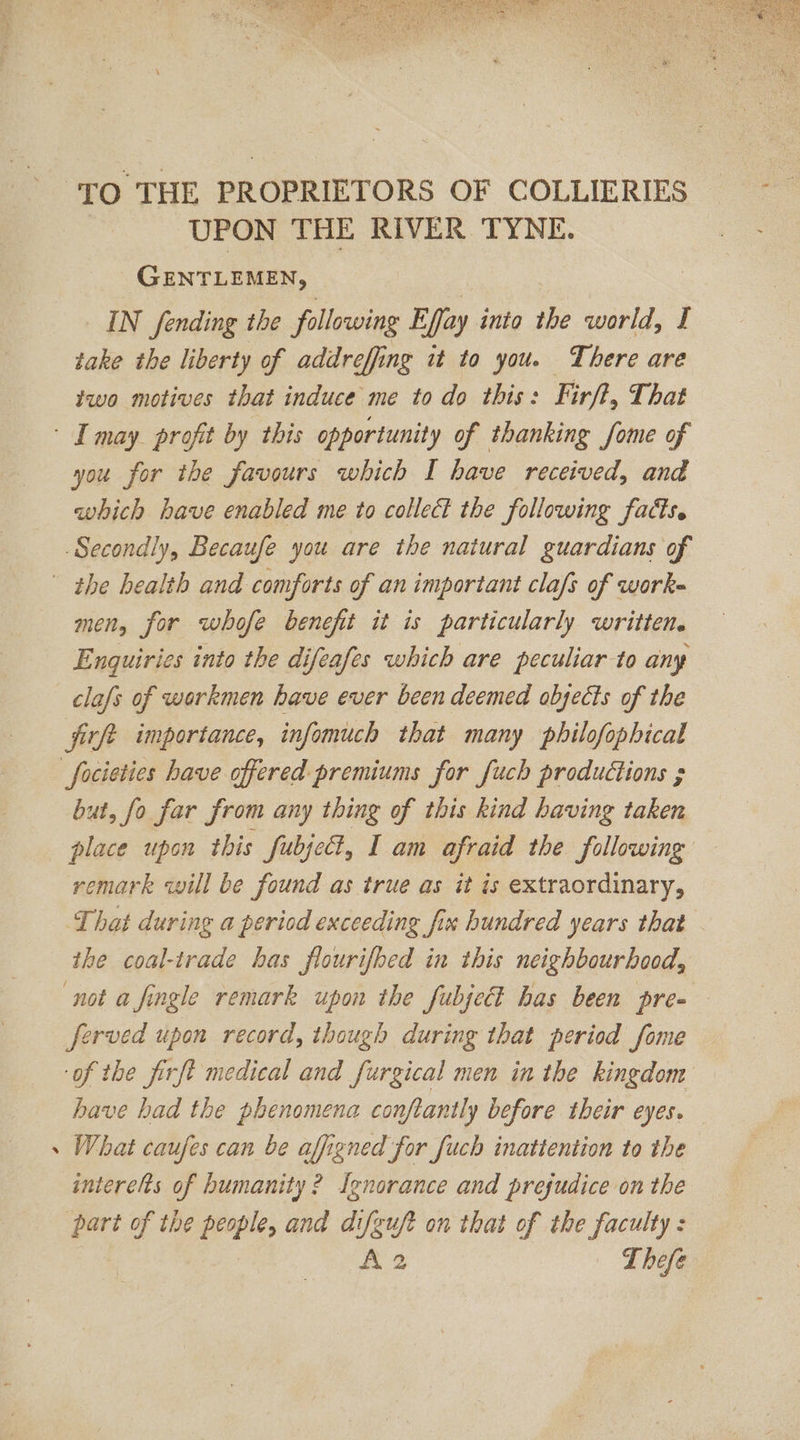 TO THE PROPRIETORS OF COLLIERIES
UPON THE RIVER TYNE.
GENTLEMEN,
IN ſending the following Eſſay into the world, I
take the liberty of addreſſing it to you. There are
two motives that induce me to do this: Firſt, That
I may profit by this opportunity of thanking ſome of
you for the favours which I have received, and
which have enabled me to collect the following facts.
Secondly, Becauſe you are the natural guardians of
the health and comforts of an important claſs of work-
men, for whoſe benefit it is particularly written.
Enquiries into the diſeaſes which are peculiar to any
claſs of workmen have ever been deemed objects of the
firſt importance, inſomuch that many philoſophical
ſocieties have offered premiums for ſuch productions;
but, ſo far from any thing of this kind having taken
place upon this ſubject, I am afraid the following
remark will be found as true as it is extraordinary,
That during a period exceeding ſix hundred years that
the coal-trade has flouriſhed in this neighbourhood,
not a ſingle remark upon the ſubject has been pre-
ſerved upon record, though during that period ſome
of the firſt medical and ſurgical men in the kingdom
have had the phenomena conſtantly before their eyes.
What cauſes can be aſſigned for ſuch inattention to the
intereſts of humanity? Ignorance and prejudice on the
part of the people, and diſguſt on that of the faculty:
A 2 Theſe